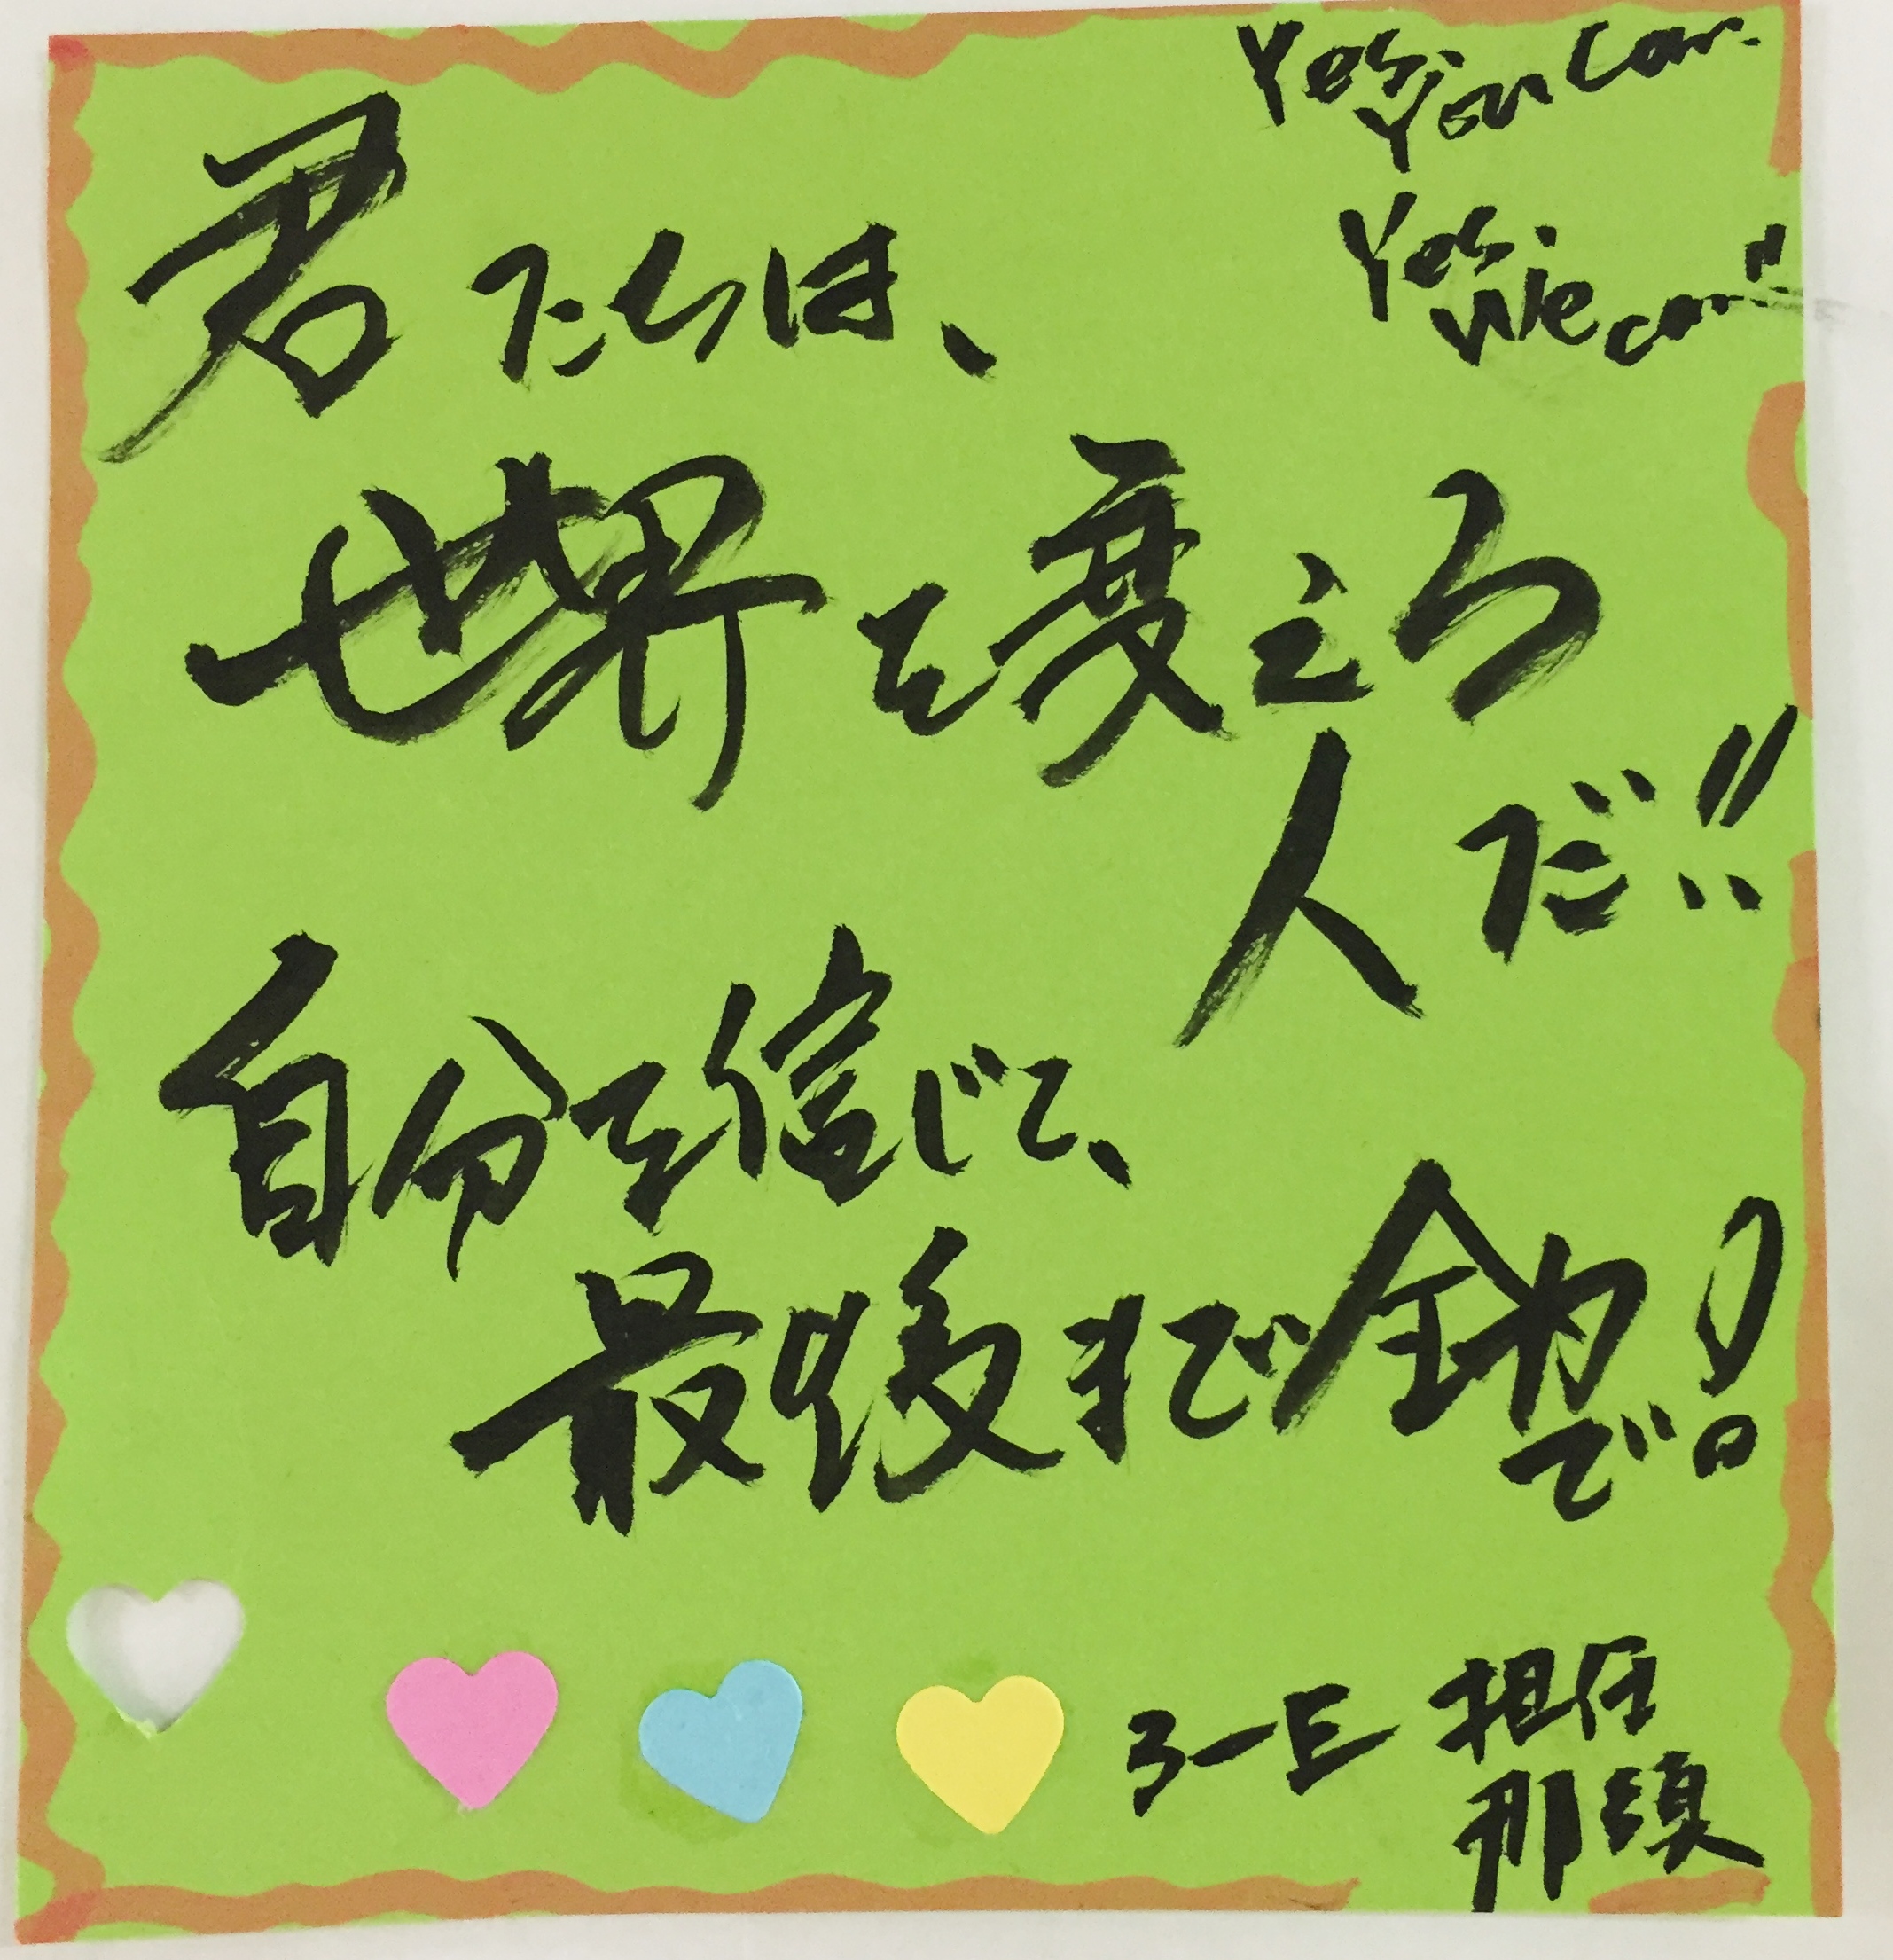 Yes. You Can.
Yes. We can!!
君たちは、
世界を変える
人だ!!
自分を信じて、
最後まで全力
で!
3-E 担任
那須